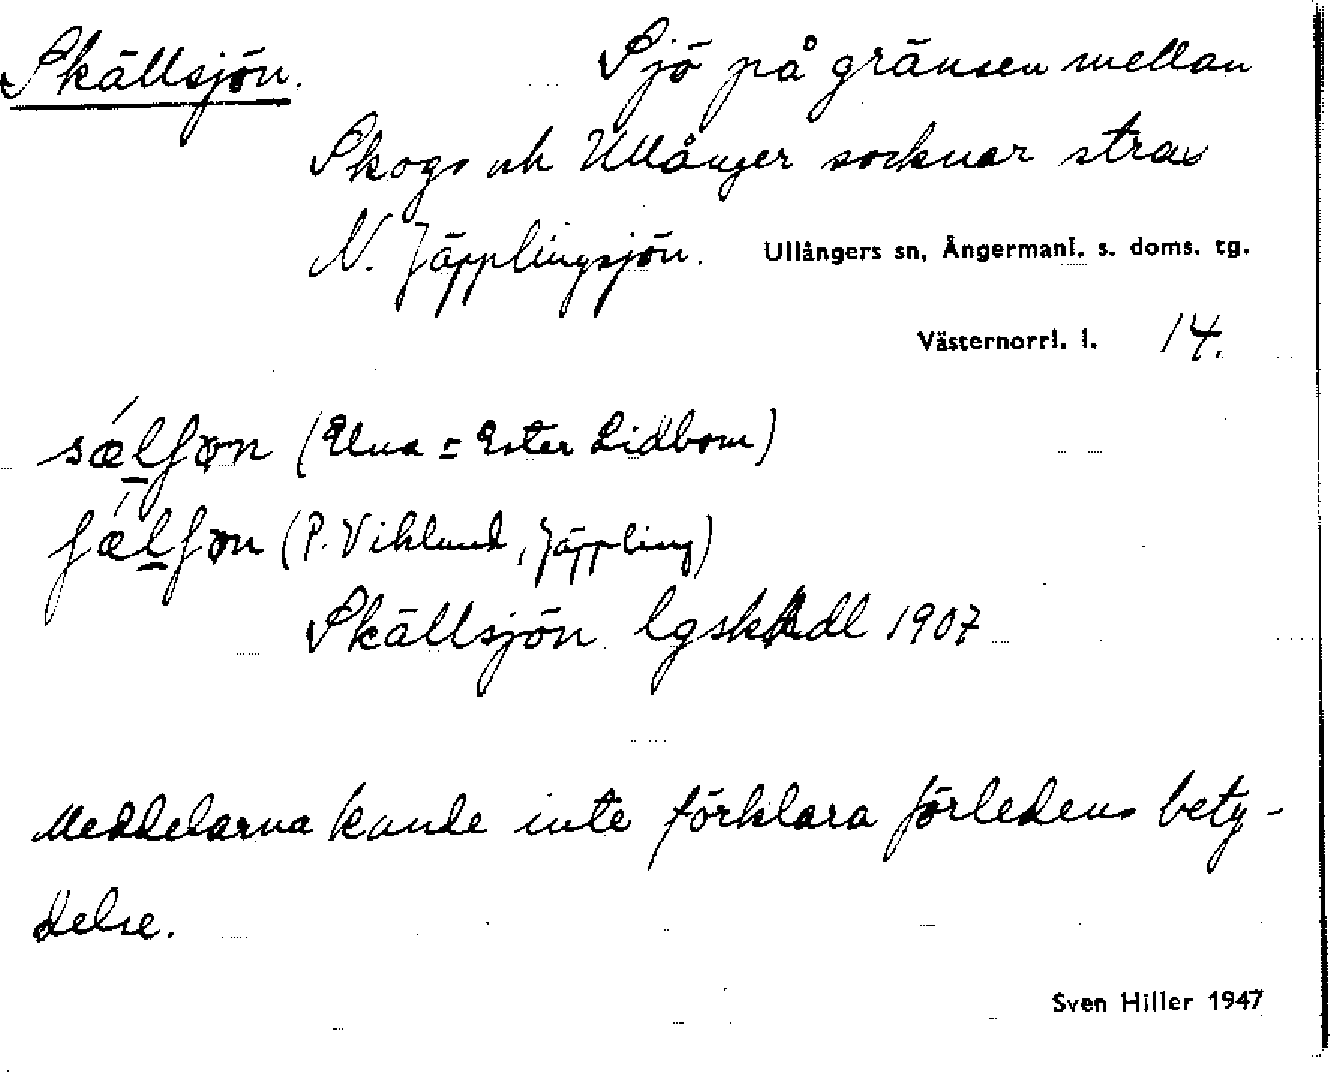 Skällsjön. Sjö på gränsen mellan
Skogs och Ullånger socknar strax
N. Jäpplingsjön. Ullångers sn, Ångermanl. s. doms. tg.
Västernorrl. l. 14.
sǽl̲ʃɷn (Elna = Ester Lidbom)
ʃǽl̲ʃɷn (P. Viklund, Jäppling)
Skällsjön lgskhdl 1907
Meddelarna kunde inte förklara förledens bety-
delse.
Sven Hiller 1947